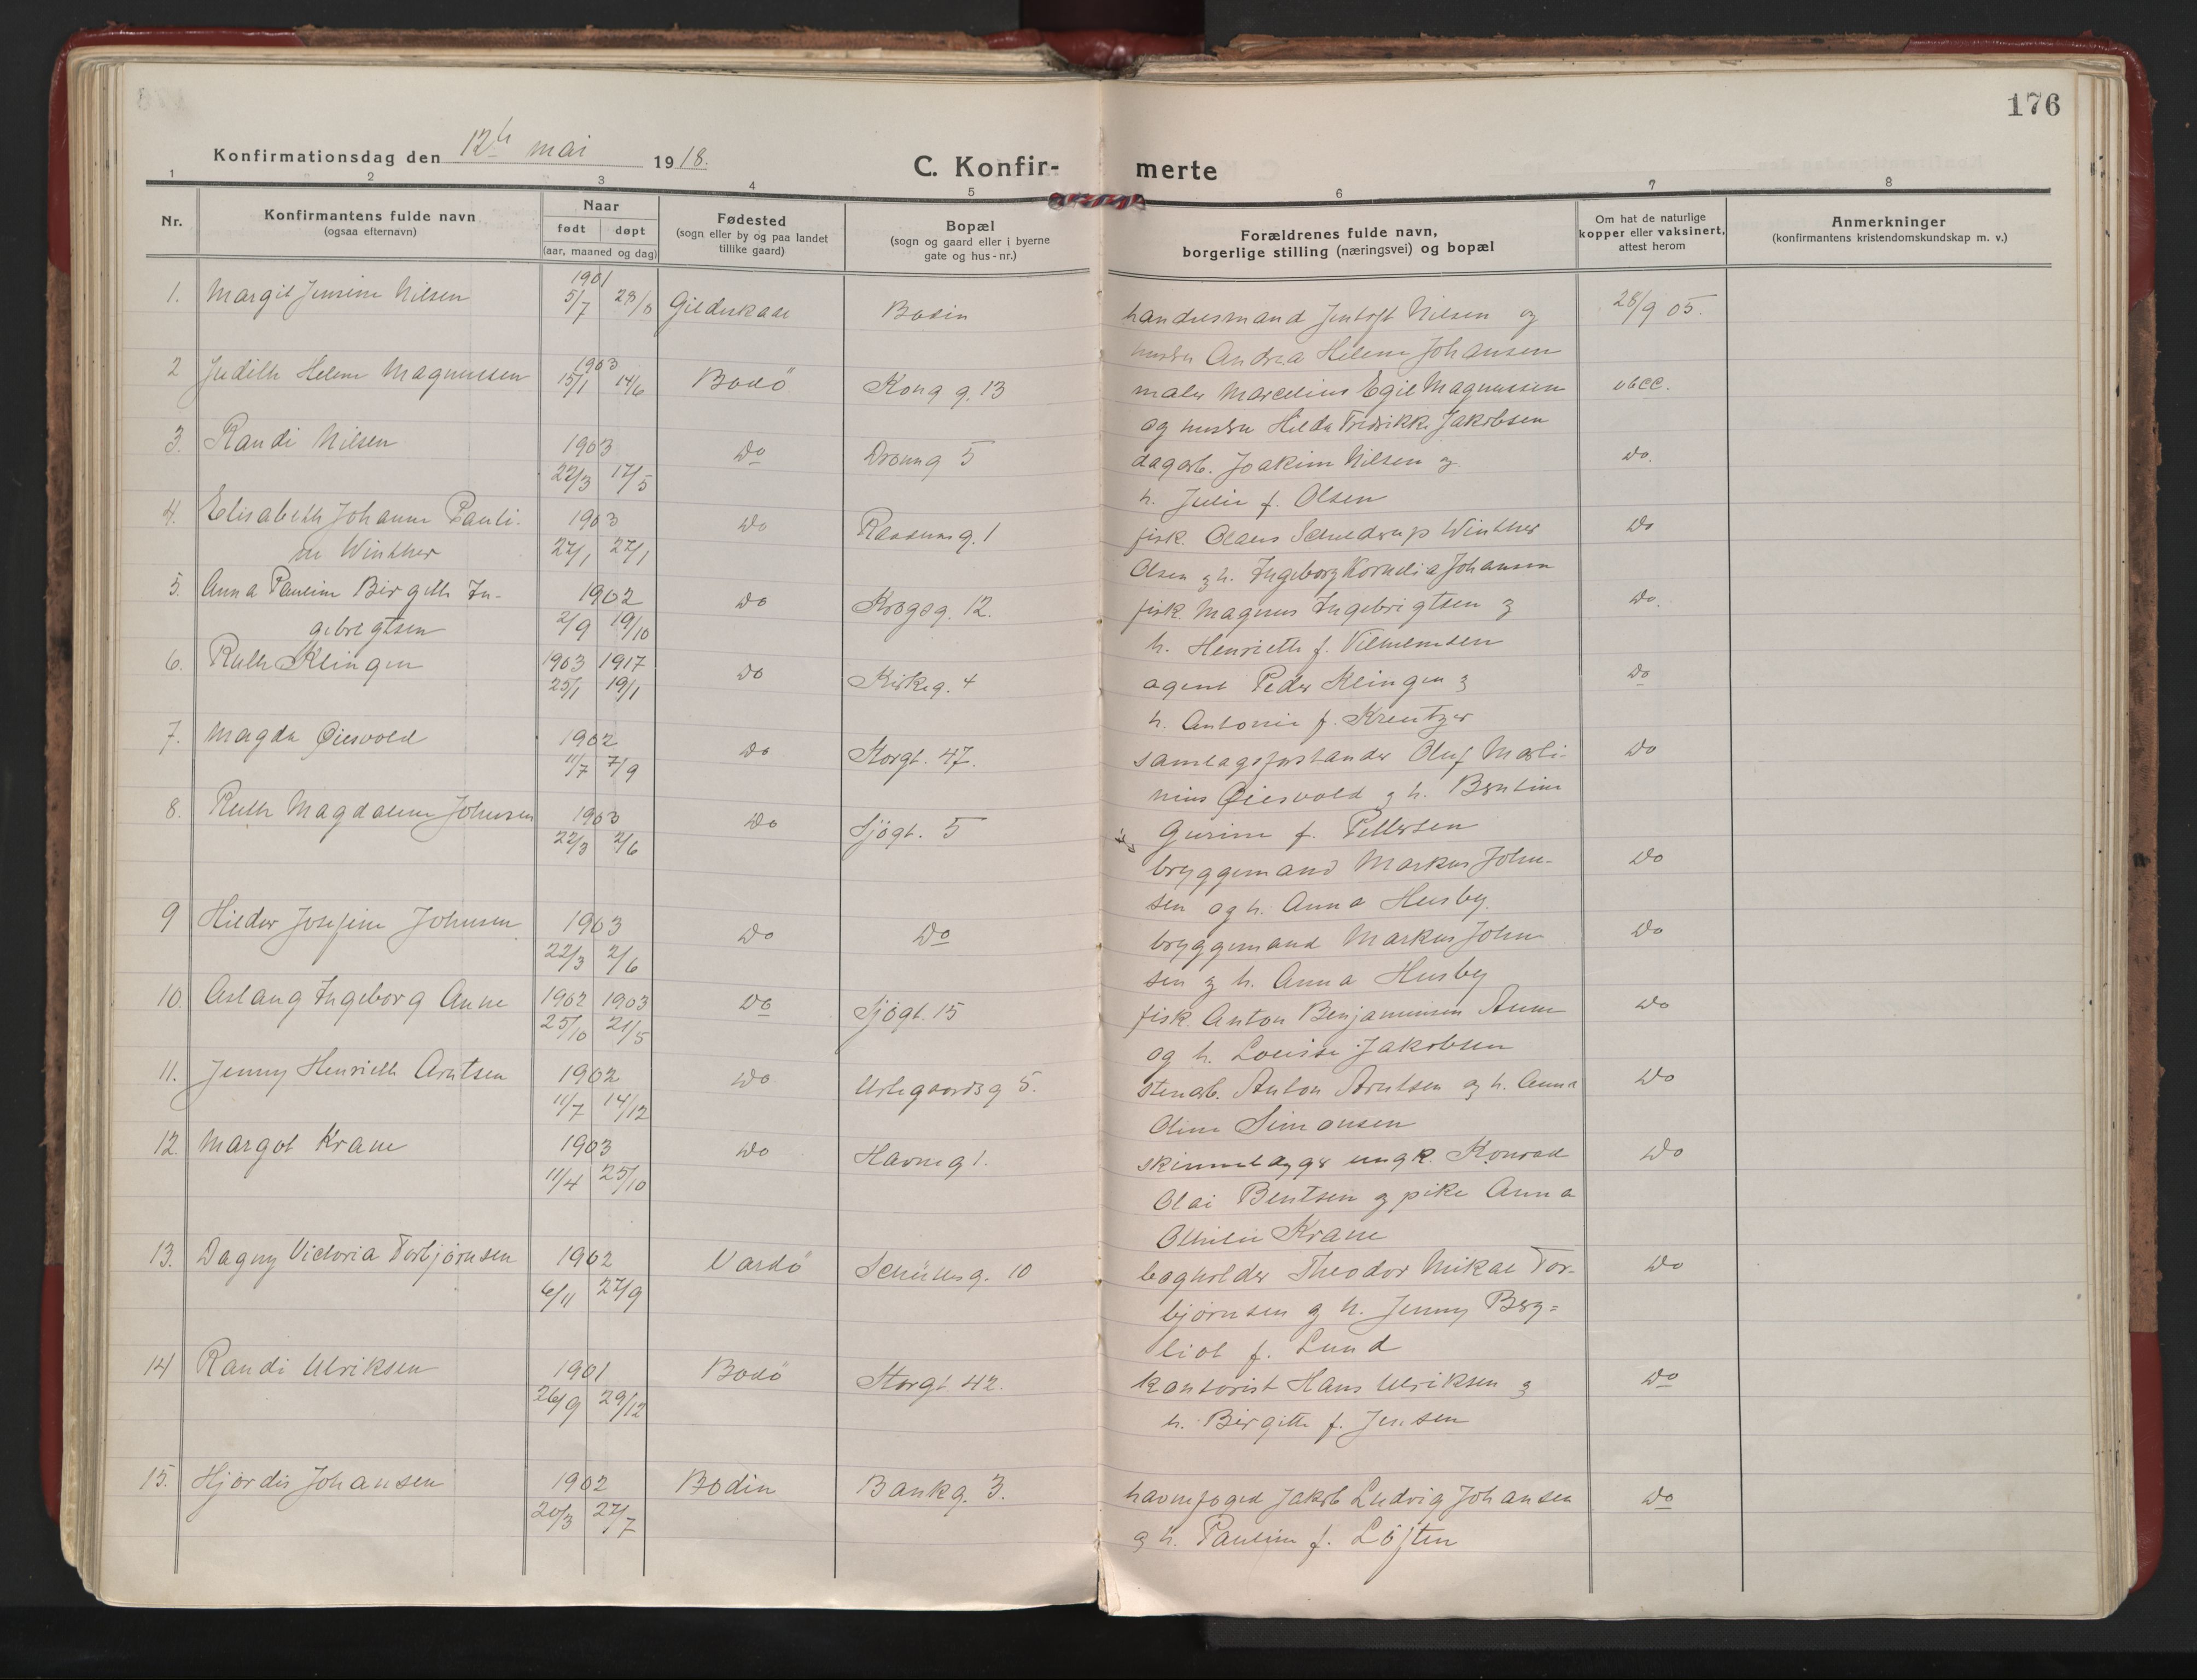 176
Konfirmationsdag den 12te mai 1918.
C. Konfir- merte
1 2 3 4 5 6 7 8
Nr.
Konfirmantens fulde navn
(ogsaa efternavn)
Naar
født døpt
(aar, maaned og dag)
Fødested
(sogn eller by og paa landet
tillike gaard)
Bopæl
(sogn og gaard eller i byerne
gate og hus-nr.)
Forældrenes fulde navn,
borgerlige stilling (næringsvei) og bopæl
Om hat de naturlige
kopper eller vaksinert,
attest herom
Anmerkninger
(konfirmantens kristendomskundskap m. v.)
1901
1. Margit Jensine Nilsen 5/7 28/8 Gildeskaal Bodin handelsmand Jentoft Nilsen og 28/9 05.
hustru Andrea Helene Johansen
1903
2 Judith Helene Magnussen 15/1 14/6 Bodö Kong g. 13 maler Marcelius Egil Magnussen
og hustru Hilda Fredrikke Jakobsen
3. Randi Nilsen 1903 Do Dronn g 5 dagarb. Joakim Nilsen og Do.
22/3 17/5 h. Julie f. Olsen
4. Elisabeth Johanne Pauli- 1903 Do g. 1 fisk. Olaus Scheldrup Winther Do
ne Winther 27/1 27/1 Olsen og h. Ingeborg Kornelia Johansen
5. Anna Pauline Birgitte In- 1902 Do Krogsg. 12. fisk. Magnus Ingebrigtsen og Do.
gebrigtsen 2/9 19/10 h. Henriette f. Vilhelmsen
6. Ruth Klingen 1903 1917 Do Kirkeg. 4 agent Peder Klingen og Do
25/1 19/1 h. Antonie f. Kreutzer
7. Magda Øiesvold 1902 Do Storgt. 47. samlagsforstander Oluf Marti- Do
11/7 7/9 nius Øiesvold og h. Bentine
Gurine f. Pettersen
8. Ruth Magdalene Johnsen 1903 Do Sjögt. 5 bryggemand Markus John- Do
22/3 2/6 sen og h. Anna Husby.
9 Hildur Josefine Johnsen 1903 Do Do bryggemand Markus John Do
22/3 2/6 sen og h. Anna Husby
10. Aslaug Ingeborg Anne 1902 1903 Do Sjögt. 15 fisk. Anton Benjaminsen Do
25/10 21/5 og h. Louise Jakobsen
11. Jenny Henriette Arntsen 1902 Do g 5. stenarb. Anton Arntsen og h. Anna Do
11/7 14/12 Oline Simonsen
12. Margot Krane 1903 Do Havneg 1. skinnelægger ungk. Konrad Do
11/4 25/10 Olai Bentsen og pike Anna
Othilie Krane
13. Dagny Victoria Torbjørnsen 1902 Vardö g. 10 bogholder Theodor Mikal Tor- Do
6/11 27/9 bjørnsen og h. Jenny Berg-
liot f. Lund
14 Randi Ulriksen 1901 Bodö Storgt 42. kontorist Hans Ulriksen og Do
26/9 29/12 h. Birgitte f. Jensen
15. Hjördis Johansen 1902 Bodin Bankg. 3. havnefoged Jakob Ludvig Johansen Do
20/3 27/7 og h. Pauline f. Löjten